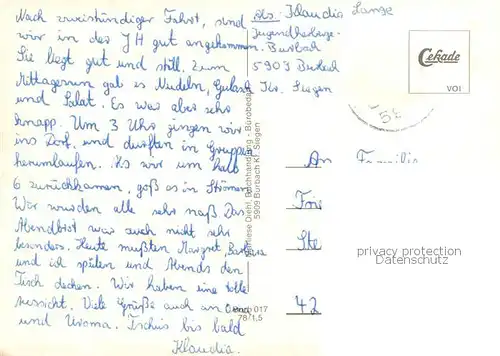 Nach zweistündiger Fahrt, sind
wir in der JH gut angekommen.
Sie liegt gut und still. Zum
Mittagessen gab es Nudeln, Gulasch
und Salat. Es war aber sehr
knapp. Um 3 Uhr gingen wir
ins Dorf und durften in Gruppen
herumlaufen. Als wir um halb
6 zurückkamen, goß es in Strömen.
Wir wurden alle sehr naß. Das
Abendbrot war auch nicht sehr
besonders. Heute mußten Margret, Barbara
und ich spülen und Abends den
Tisch decken. Wir haben eine tolle
Aussicht. Viele Grüße auch an Oma
und Uroma. Tschüs bis bald
Klaudia.
Abs. Klaudia Lange
Jugendherberge
Burbach
5903 Burbach
Kr. Siegen
Diehl, Buchhandlung - Bürobedarf
5909 Burbach Kr. Siegen
017
78/1,5
Cekade
VOI
An Familie
Ste
42
privacy protection
Datenschutz